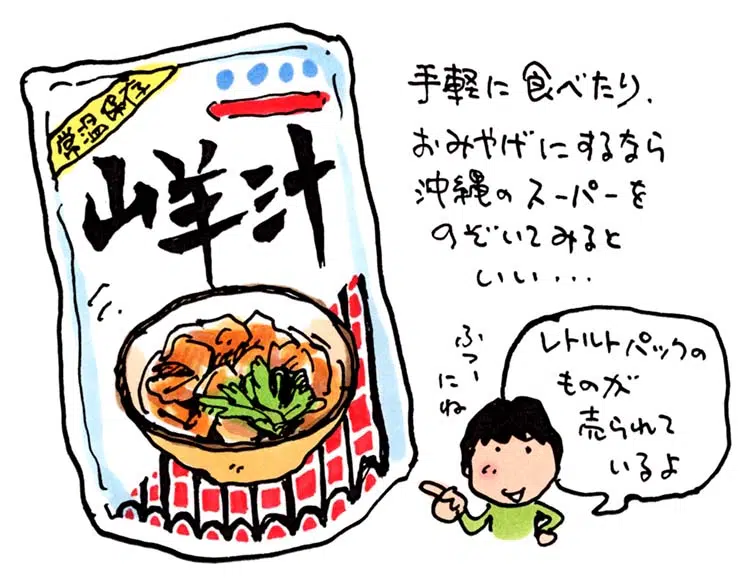 常温保存
山羊汁
手軽に食べたり、
おみやげにするなら
沖縄のスーパーを
のぞいてみると
いい...
ふつー
にね
レトルトパックの
ものが
売られて
いるよ